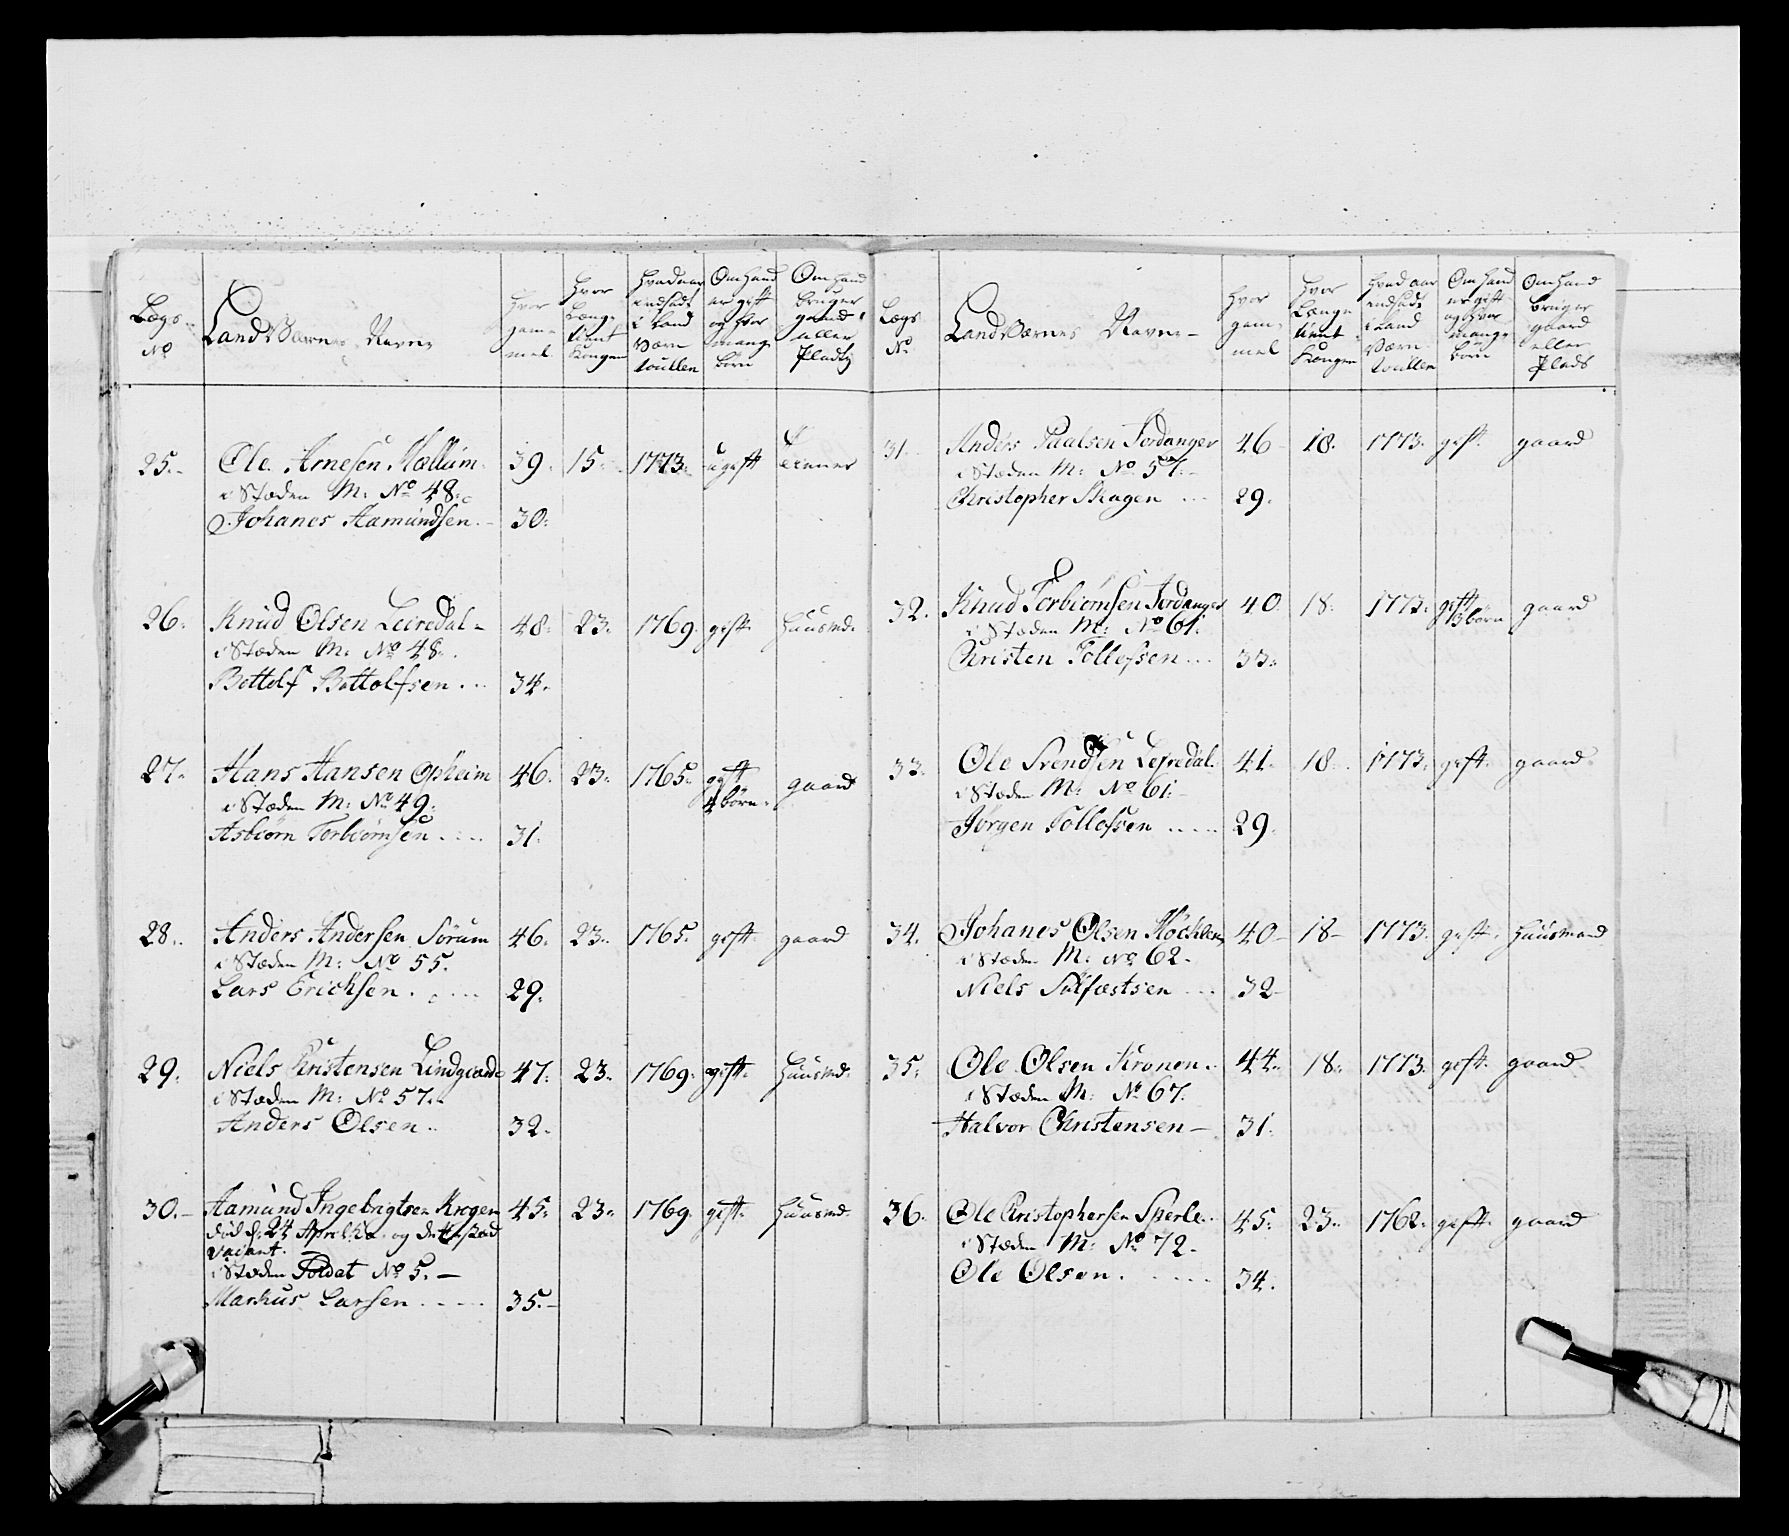 Lægs No
Land Værnes Navne
Hvor gammel
Hvor Længe tient Kongen
Hvad aar indsadt i Land Værn Roullen
Om hand er gift og hvor mange börn
Om hand bruger gaard eller Plads
25. Ole Arnesen Mællum 39. 15. 1773. ugift tienner
i Stæden M: No 48.
Johanes Aamundsen 30.
26. Knud Olsen Leiredal 48. 23. 1769. gift. Huusmd.
i Stæden M: No 48.
Bottolf Bottolfsen 34.
27. Hans Hansen Opheim 46. 23. 1765. gift 4 börn. gaard
i Stæden M: No 49.
Asbiörn Torbiörnsen 31.
28. Anders Andersen Sörum 46. 23. 1765. gift. gaard
i Stæden M: No 55.
Lars Ericksen 29.
29. Niels Christensen Lindgaard 47. 23. 1769. gift. Huusmd.
i Stæden M: No 57.
Anders Olsen 32.
30. Aamund Ingebrigtsen Krogen 45. 23. 1769. gift. Huusmd.
död d: 24 April og dette stæd
vacant.
i Stæden Soldat No 5.
Markus Larsen 35.
Lægs No
Land Værnes Navne
Hvor gammel
Hvor Længe tient Kongen
Hvad aar indsadt i Land Værn Roullen
Om hand er gift og hvor mange börn
Om hand bruger gaard eller Plads
31. Anders Paalsen Jordanger 46 18. 1773. gift. gaard
i Stæden M: No 57.
Christopher Skagen 29.
32. Knud Torbiörnsen Jordanger 40 18. 1773. gift 3 börn gaard
i Stæden M: No 61.
Christen Tollefsen 33.
33. Ole Svendsen Leiredal 41. 18. 1773. gift. gaard.
i Stæden M: No 61.
Jörgen Tollofsen 29.
34. Johanes Olsen 40 18 1773. gift. Huusmand
i Stæden M: No 62.
Niels Sulfæstsen 32
35. Ole Olsen Kronen 44. 18. 1773. gift. gaard
i Stæden M: No 67.
Halvor Christensen 31.
36. Ole Christophersen Sperle 45. 23. 1762. gift. gaard
i Stæden M: No 72.
Ole Olsen 34.